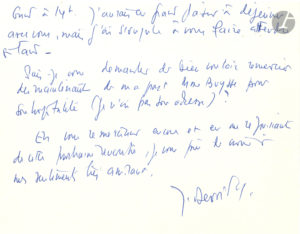 j'aurais eu grand plaisir à déjeuner
avec vous, mais j'ai
tard.
Puis-je vous demander de bien vouloir remercier
dès maintenant de ma part Mme pour
son hospitalité (je n'ai pas son adresse) ?
En vous remerciant encore et en me réjouissant
de cette prochaine rencontre, je vous prie de croire à
mes sentiments très amicaux.
J. Derrida